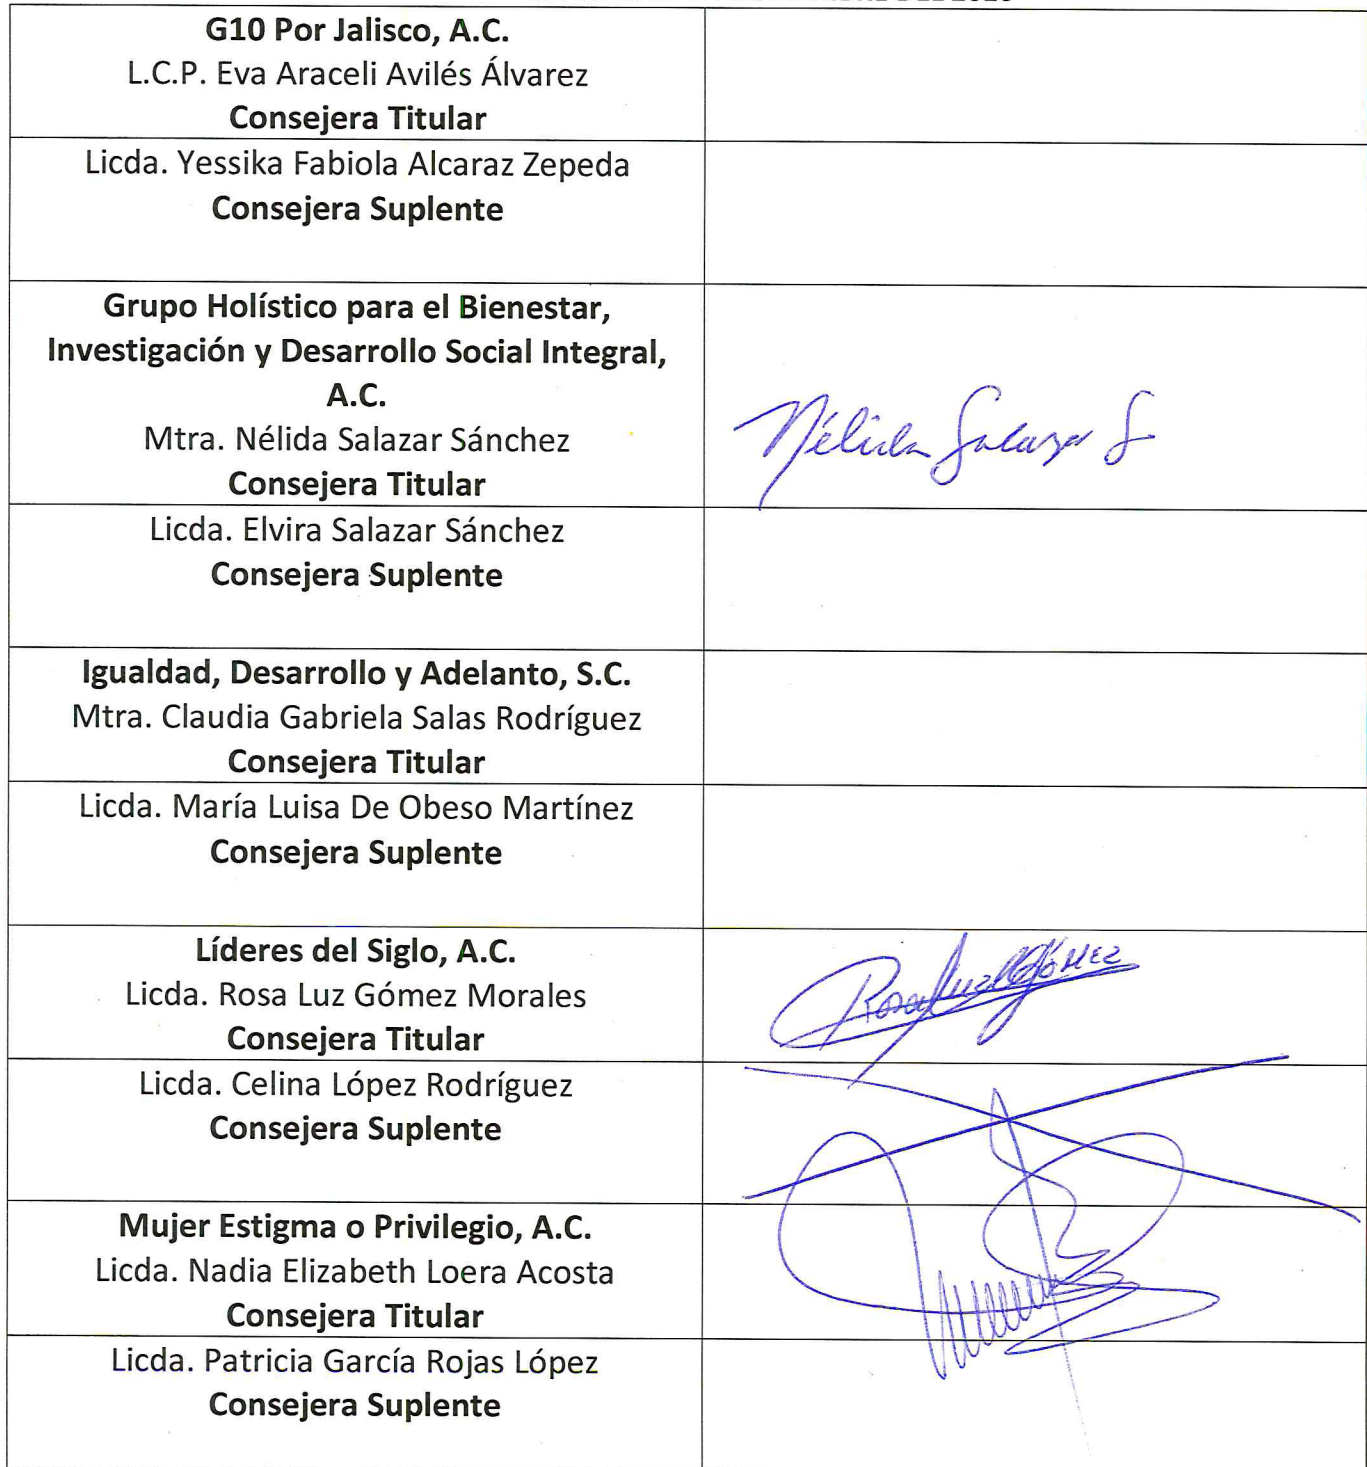 G10 Por Jalisco, A.C.
L.C.P. Eva Araceli Avilés Álvarez
Consejera Titular
Licda. Yessika Fabiola Alcaraz Zepeda
Consejera Suplente
Grupo Holístico para el Bienestar,
Investigación y Desarrollo Social Integral,
A.C.
Mtra. Nélida Salazar Sánchez
Consejera Titular
Nélida Salazar S
Licda. Elvira Salazar Sánchez
Consejera Suplente
Igualdad, Desarrollo y Adelanto, S.C.
Mtra. Claudia Gabriela Salas Rodríguez
Consejera Titular
Licda. María Luisa De Obeso Martínez
Consejera Suplente
Líderes del Siglo, A.C.
Licda. Rosa Luz Gómez Morales
Consejera Titular
Rosa Luz Gómez
Licda. Celina López Rodríguez
Consejera Suplente
Mujer Estigma o Privilegio, A.C.
Licda. Nadia Elizabeth Loera Acosta
Consejera Titular
Licda. Patricia García Rojas López
Consejera Suplente